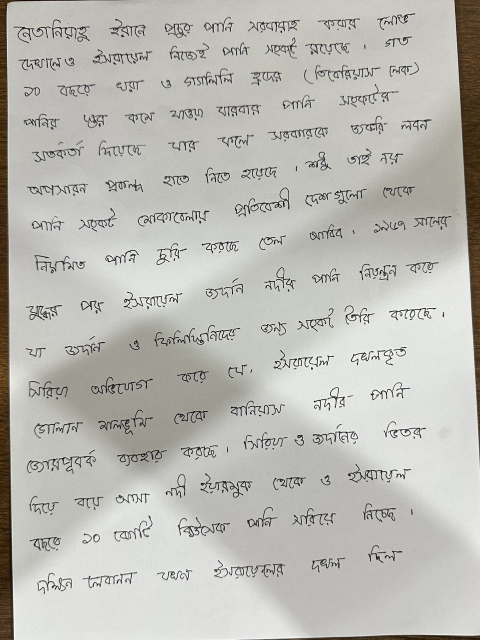 নেতানিয়াহু ইরানে প্রচুর পানি সরবরাহ করার লোভ
দেখালেও ইসরায়েল নিজেই পানি সংকটে রয়েছে। গত
১০ বছরে খরা ও গ্যালিলি হ্রদের (তিবেরিয়াস লেক)
পানির স্তর কমে যাওয়া বারবার পানি সংকটের
সতর্কতা দিয়েছে যার ফলে সরকারকে জরুরি লবন
অপসারন প্রকল্প হাতে নিতে হয়েছে। শুধু তাই নয়
পানি সংকট মোকাবেলায় প্রতিবেশী দেশগুলো থেকে
নিয়মিত পানি চুরি করছে তেল আবিব। ১৯৬৭ সালের
যুদ্ধের পর ইসরায়েল জর্দান নদীর পানি নিয়ন্ত্রন করে
যা জর্দান ও ফিলিস্তিনিদের জন্য সংকট তৈরি করেছে।
সিরিয়া অভিযোগ করে যে, ইসরায়েল দখলকৃত
গোলান মালভূমি থেকে বানিয়াস নদীর পানি
জোরপূর্বক ব্যবহার করছে। সিরিয়া ও জর্দানের ভিতর
দিয়ে বয়ে আসা নদী ইয়ারমুক থেকে ও ইসরায়েল
বছরে ১০ কোটি কিউসেক পানি সরিয়ে নিচ্ছে।
দক্ষিন লেবানন যখন ইসরায়েলের দখলে ছিল